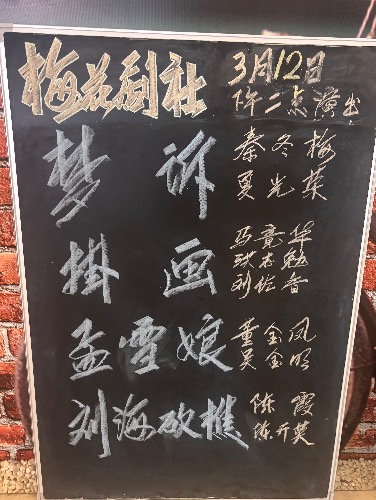 梅花剧社
3月12日
下午二点演出
梦诉
秦冬梅
光
掛画
马竟华
刘
孟雪娘
董金凤
吴金明
刘海砍樵
陈霞
陈开英